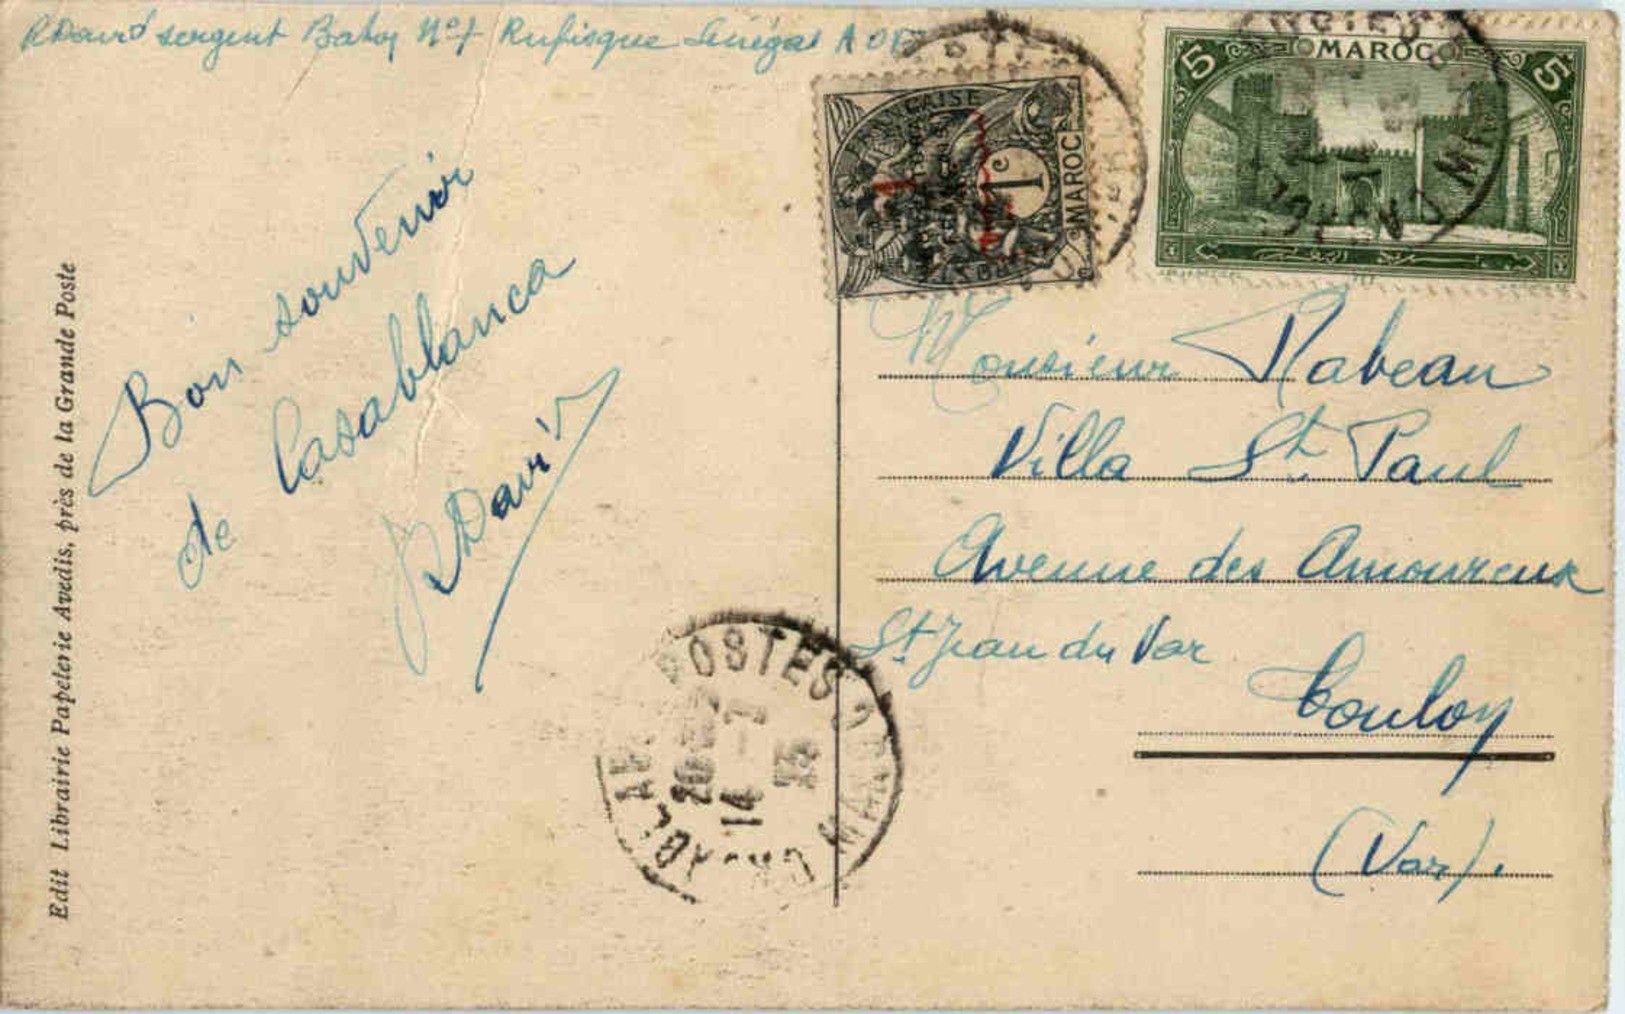 RDavid sergent Baton N°1 Rufisque Sénégal A O F
Bon souvenir
de Casablanca
RDavid
Edit Librairie Papeterie Avedis, près de la Grande Poste
ÇAISE
1c
1
MAROC
POSTES
5 MAROC 5
Monsieur Rabeau
Villa St. Paul
Avenue des Amoureux
St. Jean du Var
Toulon
(Var).
CASABLANCA POSTES MAROC
20
14 - 1